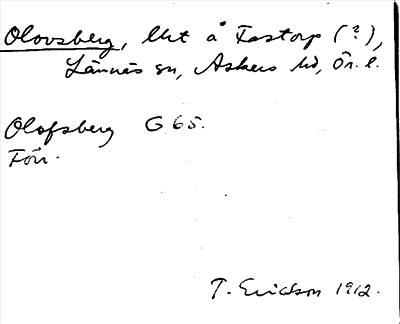 Olovsberg, lht å Fastorp (?),
Lännäs sn, Askers hd, Ör. l.
Olofsberg G 65.
Förr.
T. Ericsson 1912.